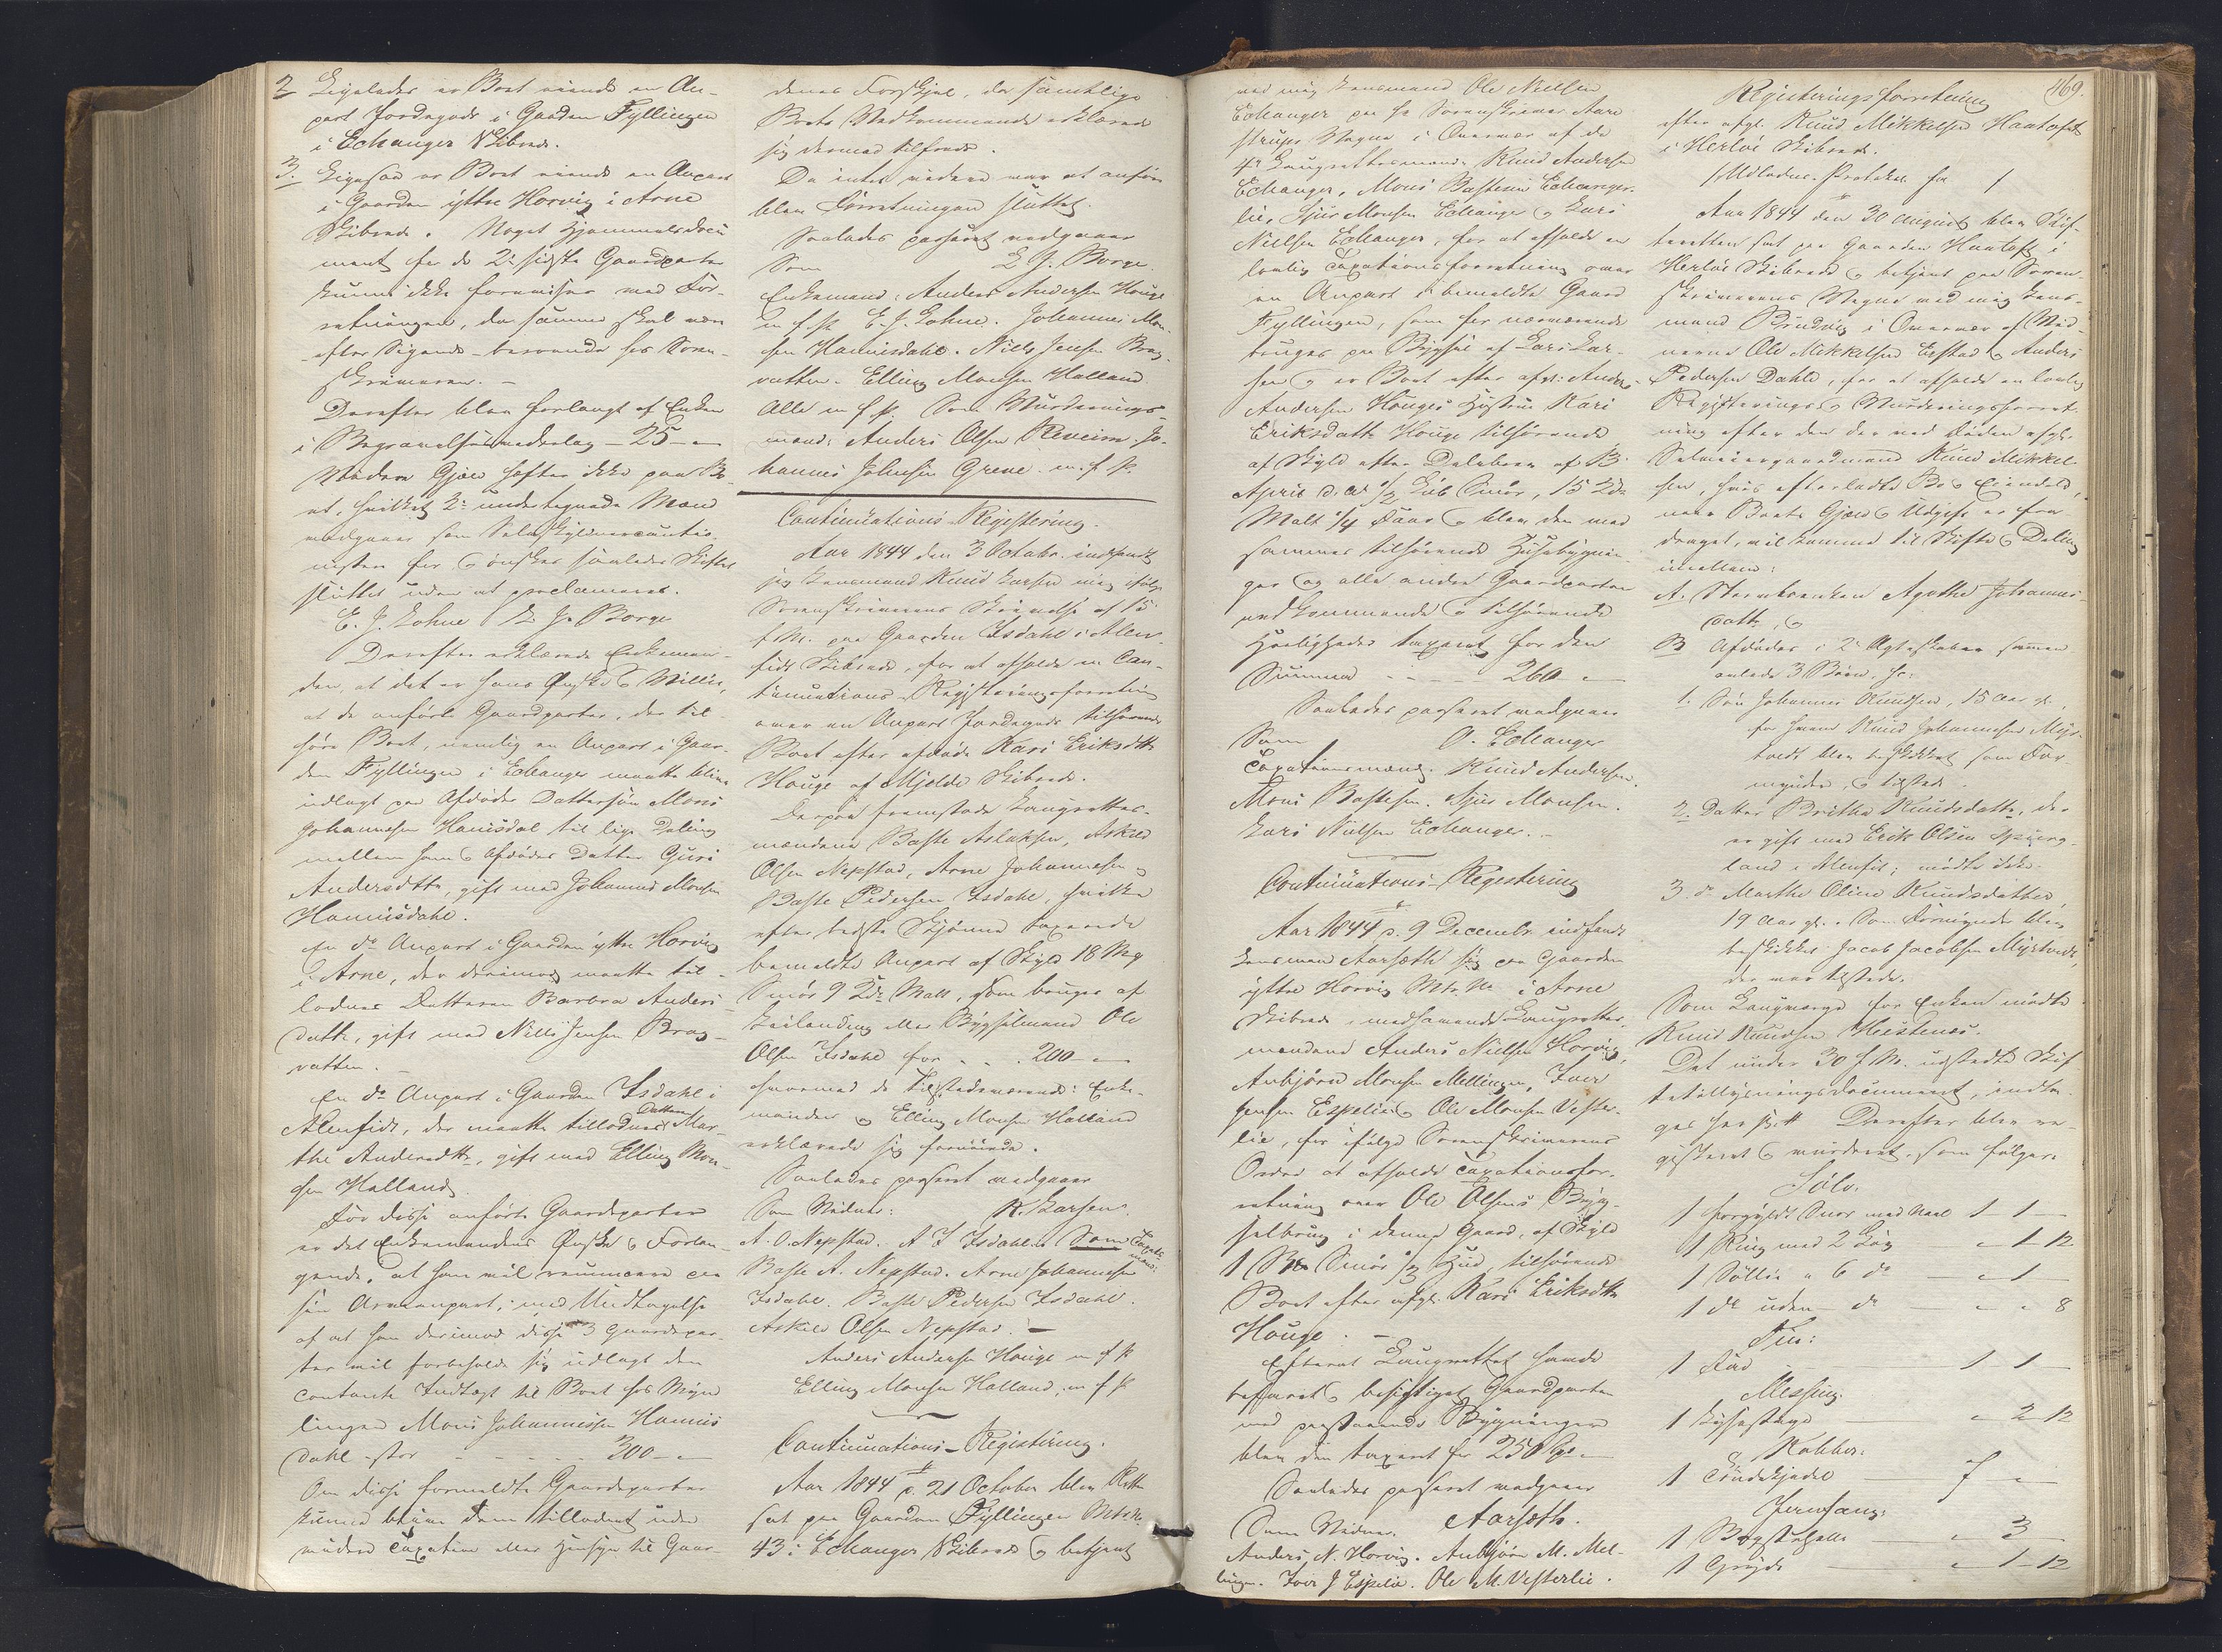 2 Ligeledes er Boet eiende en An-
part Jordegods i Gaarden Fyllingen
i Echanger Skibrede.
3. Ligesaa er Boet eiende en Anpart
i Gaarden yttre Horvig i Arne
Skibrede. Noget Hjemmelsdocu
ment for de 2de sidste Gaardparter
kunde ikke forevises ved For-
retningen, da samme skal være
efter Sigende beroende hos Soren-
skriveren. –
Derefter blev forlangt af Enken
i Begravelsesvederlag – 25 –
Videre Gjæld hefter ikke paa Bo-
et, hvilket 2de undertegnede Mænd
vedgaaer som Selvskyldnercautio-
nister for og ønsker saaledes Skiftet
sluttet uden at proclameres.
E. J. Lohne L. J. Borge
Derefter erklærede Enkeman-
den, at det er hans Ønske og Villie,
at de anførte Gaardparter, der til-
høre Boet, nemlig en Anpart i Gaar-
den Fyllingen i Echanger maatte blive
udlagt paa Afdødes Dattersøn Mons
Johannesen Hanisdal til lige Deling
mellem ham og Afdødes Datter Guri
Andersdtr, gift med Johannes Monsen
Hanisdahl.
En do Anpart i Gaarden yttre Horvig
i Arne, der derimod maatte til-
lodnes Datteren Barbra Anders
datter, gift med Niels Jensen Brag-
vatten.
En do Anpart i Gaarden Isdahl i
Alenfidt, der maatte tillodnes Datteren Mar-
the Andersdtr, gift med Elling Mon-
sen Halland.
For disse anførte Gaardeparter
er det Enkemandens Ønske og Forlan-
gende, at han vil renuncere paa
sin Arveanpart, med Undtagelse
af at han derimod disse 3 Gaardepar-
ter vil forbeholde sig udlagt den
contante Indtægt til Boet hos Mynd
lingen Mons Johannessen Hanis
dahl stor - - - 300 –
Om disse formeldte Gaardeparter
kunde blive dem tillodnet uden
videre Taxation eller Hensyn til Gaar-
denes Forskjel, da samtlige
Boets Vedkommende erklærede
sig dermed tilfreds.
Da intet videre var at anføre
blev Forretningen sluttet.
Saaledes passeret vedgaaer
Som L. J. Borge.
Enkemand: Anders Andersen Houge
m. f. P. E. J. Lohne. Johannes Mon-
sen Hanisdahl. Niels Jensen Brag-
vatten. Elling Monsen Halland
Alle m. f. P. Som Vurderings-
mænd: Anders Olsen Reveim. Jo-
hannes Johnsen Greve m. f. P.
Continuations-Registering.
Aar 1844 den 3 Octobr. indfandt
jeg Lensmand Knud Larsen mig ifølge
Sorenskriverens Skrivelse af 15
f. M. paa Gaarden Isdahl i Alen-
fidt Skibrede, for at afholde en Con-
tinuations-Registeringsforretning
over en Anpart Jordegods tilhørende
Boet efter afdøde Kari Eriksdtr
Houge af Mjelde Skibrede.
Derpaa fremstode Laugrettes-
mændene Baste Aslaksen, Askild
Olsen Nepstad, Arne Johannesen og
Baste Pedersen Isdahl, hvilke
efter bedste Skjønnd taxerede
bemeldte Anpart af Skyld 18 Mg
Smør 9 Kdr. Malt, som bruges af
Leilænding eller Bygselmand Ole
Olsen Isdahl for - - 200 –
hvormed de tilstedeværende: Enke-
manden og Elling Monsen Halland
erklærede sig fornøiede.
Saaledes passeret vedgaaer
Som Vidner: K. Larsen.
A. O. Nepstad. A. J Isdahl. Som Taxats
mænd:
Baste A. Nepstad. Arne Johannesen
Isdahl. Baste Pedersen Isdahl.
Askild Olsen Nepstad. –
Anders Andersen Houge m f P
Elling Monsen Halland, m f P
Continuations-Registering.
Aar 1844 d. 21 October blev Retten
sat paa Gaarden Fyllingen Mtr. No
43 i Echanger Skibrede og betjent
ved mig Lensmand Ole Nielsen
Echanger paa Hr Sorenskriver Aare
strups Vegne i Overvær af de
4re Laugrettesmænd: Knud Andersen
Echanger, Mons Bastesen Echanger-
lie, Sjur Monsen Echanger og Lars
Nielsen Echanger, for at afholde en
lovlig Taxationsforretning over
en Anpart i bemeldte Gaard
Fyllingen, som for nærværende
bruges paa Bygsel af Lars Lar-
sen og er Boet efter afgl: Anders
Andersen Houges Hustrue Kari
Eriksdatter Houge tilhørende,
af Skyld efter Delebrev af 13
April d. A. 1/2 Løb Smør, 15 Kdr
Malt 1/4 Faar og blev den med
sammes tilhørende Huusebygnin-
ger og alle andre Gaardparten
vedkommende og tilhørende
Herligheder taxeret for den
Summa - - - - 260 –
Saaledes passeret vedgaaer
Som O. Echanger
Taxationsmænd. Knud Andersen.
Mons Bastesen. Sjur Monsen.
Lars Nielsen Echanger. –
Continuations-Registering
Aar 1844 d. 9 Decembr. indfandt
Lensmand Aarsæth sig paa Gaarden
yttre Horvig Mtr. No i Arne
Skibrede medhavende Laugrettes-
mændene Anders Nielsen Horvig,
Anbjørn Monsen Mellingen, Iver
Jensen Espelie og Ole Monsen Vester-
lie, for ifølge Sorenskriverens
Ordre at afholde Taxationsfor-
retning over Ole Olsens Byg-
selbrug i denne Gaard, af Skyld
1 Spd Smør og Hud tilhørende
Boet efter afgl. Kari Eriksdtr
Houge. –
Efterat Laugrettet havde
befaret og besigtiget Gaardparten
med paastaaende Bygninger
blev den taxeret for 250 Spd –
Saaledes passeret vedgaaer
Som Vidner. Aarsæth.
Anders N. Horvig. Anbjørn M. Mel-
lingen. Iver J Espelie. Ole M. Vesterlie.
469.
Registeringsforretning
efter afgl. Knud Mikkelsen Haatoft
i Herløe Skibrede.
Aar 1844 den 30 August blev Skif-
teretten sat paa Gaarden Haatoft i
Herløe Skibrede og betjent paa Soren-
skriverens Vegne ved mig Lens-
mand Brudvig i Overvær af Vid-
nerne Ole Mikkelsen Erstad og Anders
Pedersen Dahle, for at afholde en lovlig
Registerings og Vurderingsforret-
ning efter den der ved Døden afgl.
Selveiergaardmand Knud Mikkel-
sen, hvis efterladte Bo og Eiendele,
naar Boets Gjæld og Udgift er fra-
draget, vil komme til Skifte og Deling
imellem:
A. Stervboenken Agathe Johannes-
datter, og
B Afdødes i 2de Ægteskaber sammen-
avlede 3 Børn. Ss:
1. Søn Johannes Knudsen, 15 Aar gl.,
for hvem Knud Johannesen Myr-
tvedt blev beskikket som For-
mynder, og tilstede.
2. Datter Brithe Knudsdatter, der
er gift med Erik Olsen Spjong-
land i Alenfit; mødte ikke.
3. do Marthe Oline Knudsdatter,
19 Aar gl. Som Formynder blev
beskikket Jacob Jacobsen Myrtvedt,
der var tilstede.
Som Laugværge for Enken mødte
Knud Knudsen Heestenes.
Det under 30 f. M. udstedte Skif-
tetillysningsdocument, indta-
ges her sub # Derefter blev re-
gisteret og vurderet, som følger.
Sølv.
1 forgyldt Snor med Naal 1 – 1 –
1 Ring med 2 Løv „ – 1 – 12
1 Søllie „ 6 do – „ – 1 –
1 do uden do – „ – „ 8
Tin:
1 Fad – 1 – 1 –
Messing.
1 Lysestage „ – 2 – 12
Kobber.
1 Tøndekjedel – 7 – „
Jernfang:
1 Bagstehelle – „ – 3 –
1 Gryde „ – 1 – 12